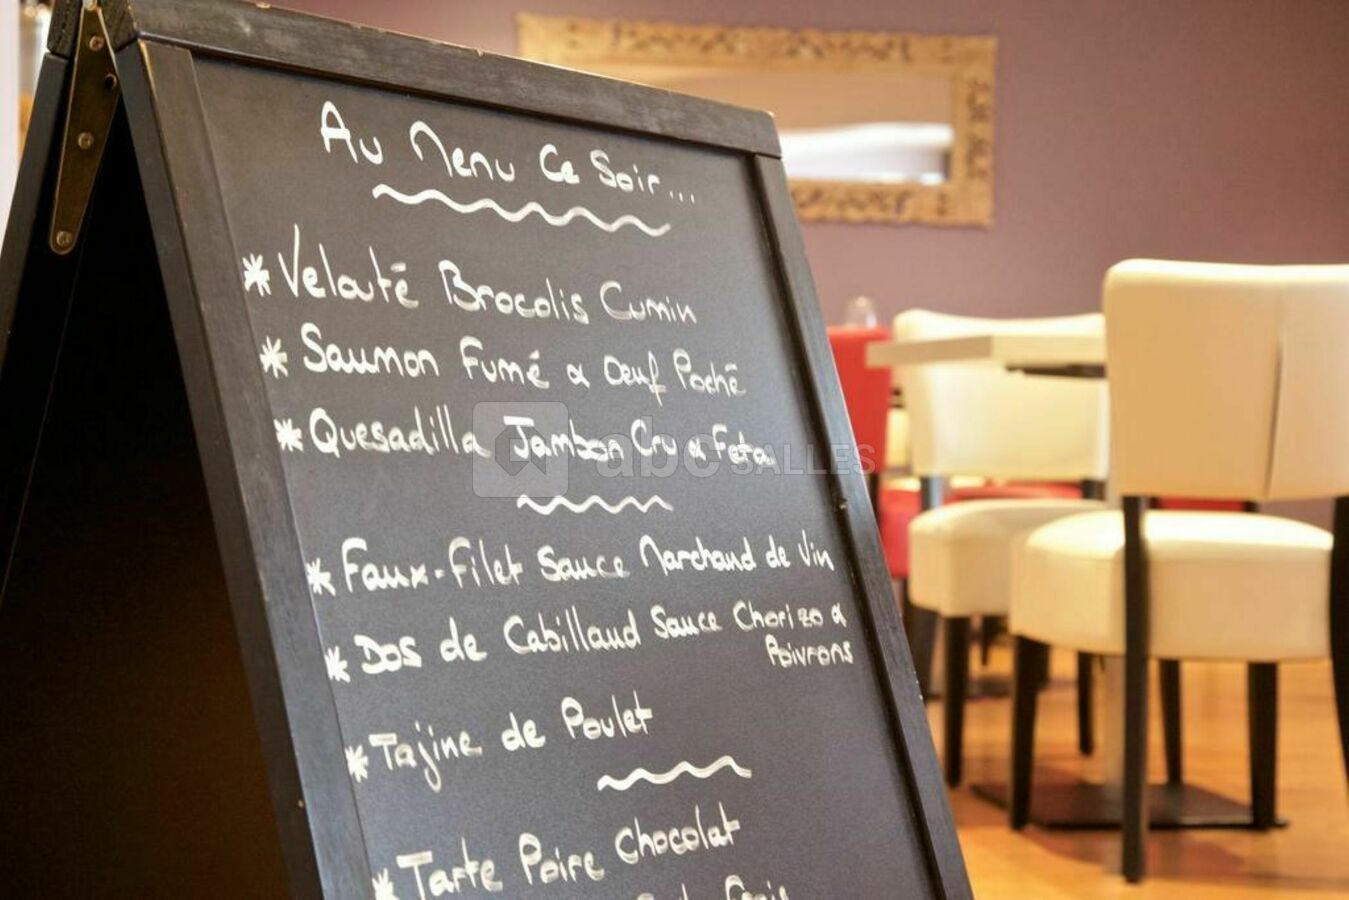 Au Menu Ce Soir...
* Velouté Brocolis Cumin
* Saumon Fumé & Oeuf Poché
* Quesadilla Jambon Cru & Feta
abcSALLES
* Faux-Filet Sauce Marchand de Vin
* Dos de Cabillaud Sauce Chorizo &
Poivrons
* Tajine de Poulet
* Tarte Poire Chocolat